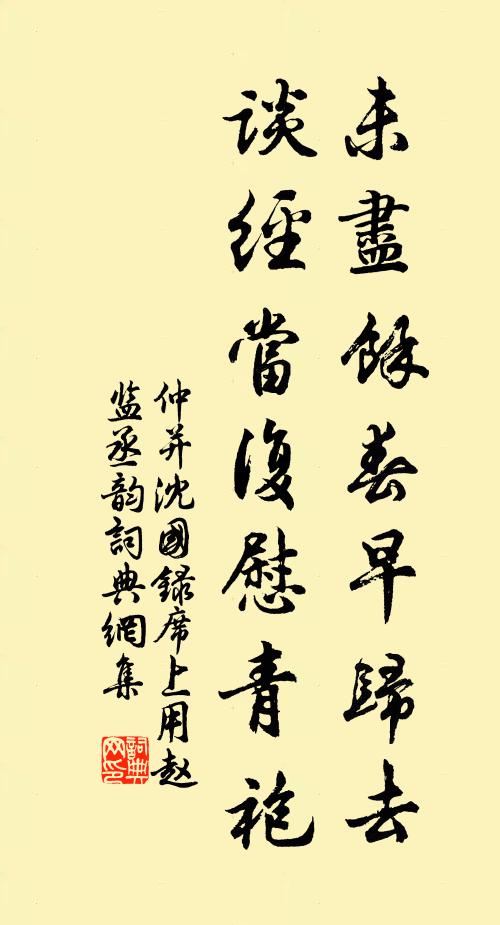 未盡餘春早歸去
談經當復慰青袍
仲并沈國録席上用赵
监丞韵詞典網集
詞典
网印